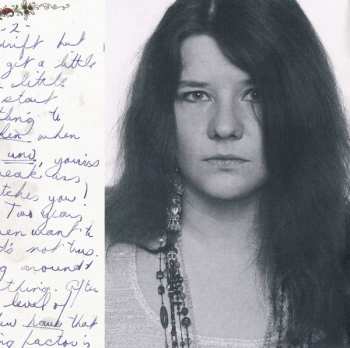 -2-
drift but
get a little
little
start
thing to
when when
und, you're
weak ass
tches you!
Two years
en want to
d's not true.
g around
thing. After
level of
w have that
g factor is